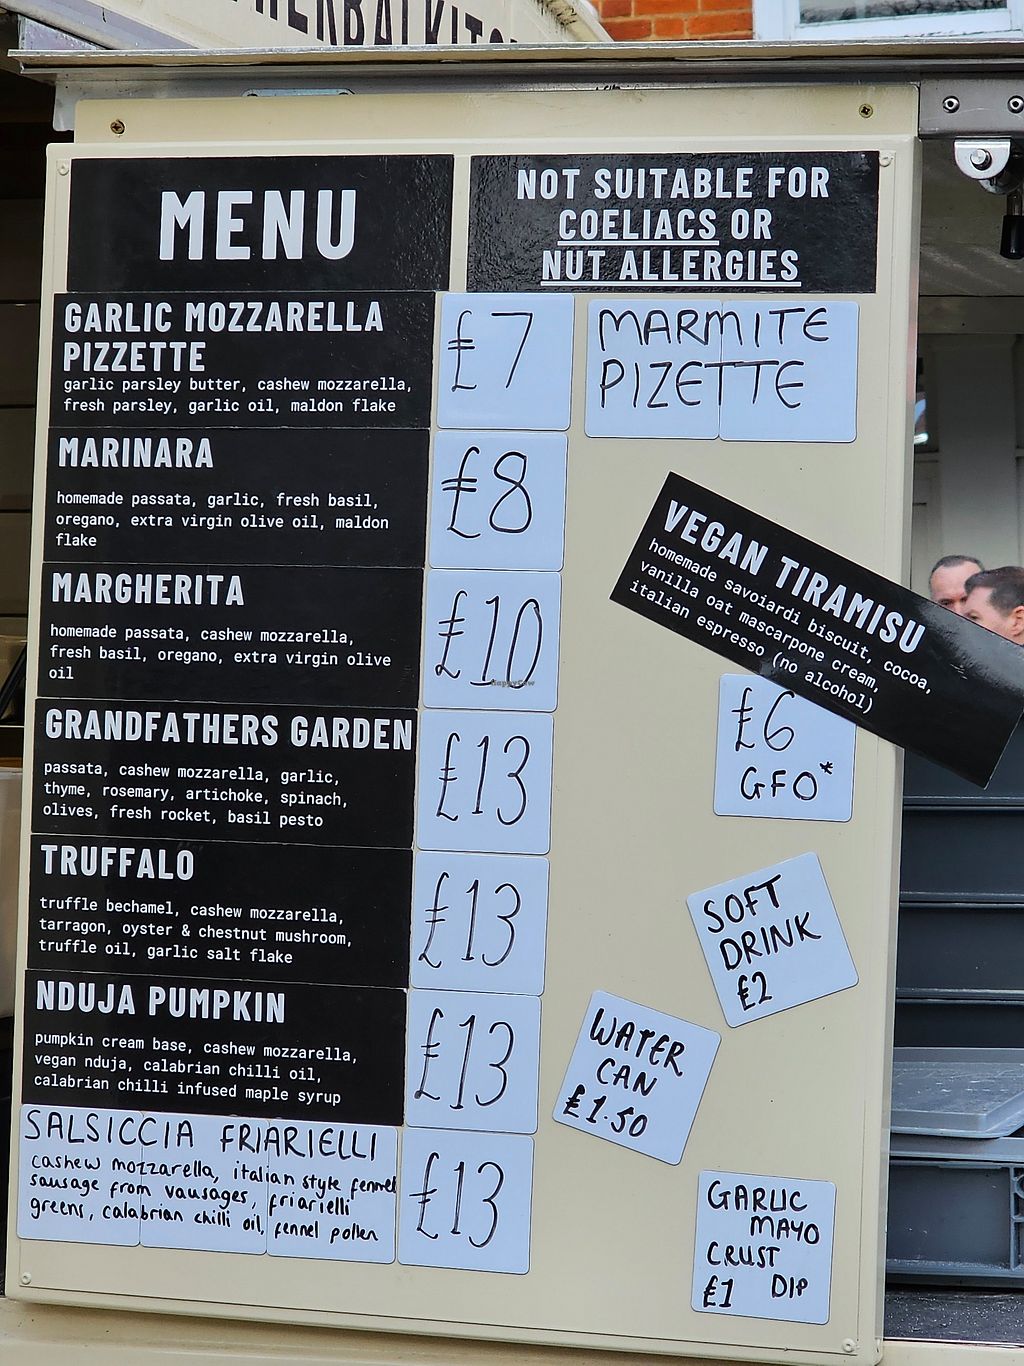 MENU
NOT SUITABLE FOR
COELIACS OR
NUT ALLERGIES
GARLIC MOZZARELLA
PIZZETTE
garlic parsley butter, cashew mozzarella,
fresh parsley, garlic oil, maldon flake
£7
MARMITE
PIZETTE
MARINARA
homemade passata, garlic, fresh basil,
oregano, extra virgin olive oil, maldon
flake
£8
MARGHERITA
homemade passata, cashew mozzarella,
fresh basil, oregano, extra virgin olive
oil
£10
GRANDFATHERS GARDEN
passata, cashew mozzarella, garlic,
thyme, rosemary, artichoke, spinach,
olives, fresh rocket, basil pesto
£13
TRUFFALO
truffle bechamel, cashew mozzarella,
tarragon, oyster & chestnut mushroom,
truffle oil, garlic salt flake
£13
NDUJA PUMPKIN
pumpkin cream base, cashew mozzarella,
vegan nduja, calabrian chilli oil,
calabrian chilli infused maple syrup
£13
SALSICCIA FRIARIELLI
cashew mozzarella, italian style fennel
sausage from vausages, friarielli
greens, calabrian chilli oil, fennel pollen
£13
VEGAN TIRAMISU
homemade savoiardi biscuit, cocoa,
vanilla oat mascarpone cream,
italian espresso (no alcohol)
£6
GFO*
SOFT
DRINK
£2
WATER
CAN
£1.50
GARLIC
MAYO
CRUST
£1 DIP
HappyCow